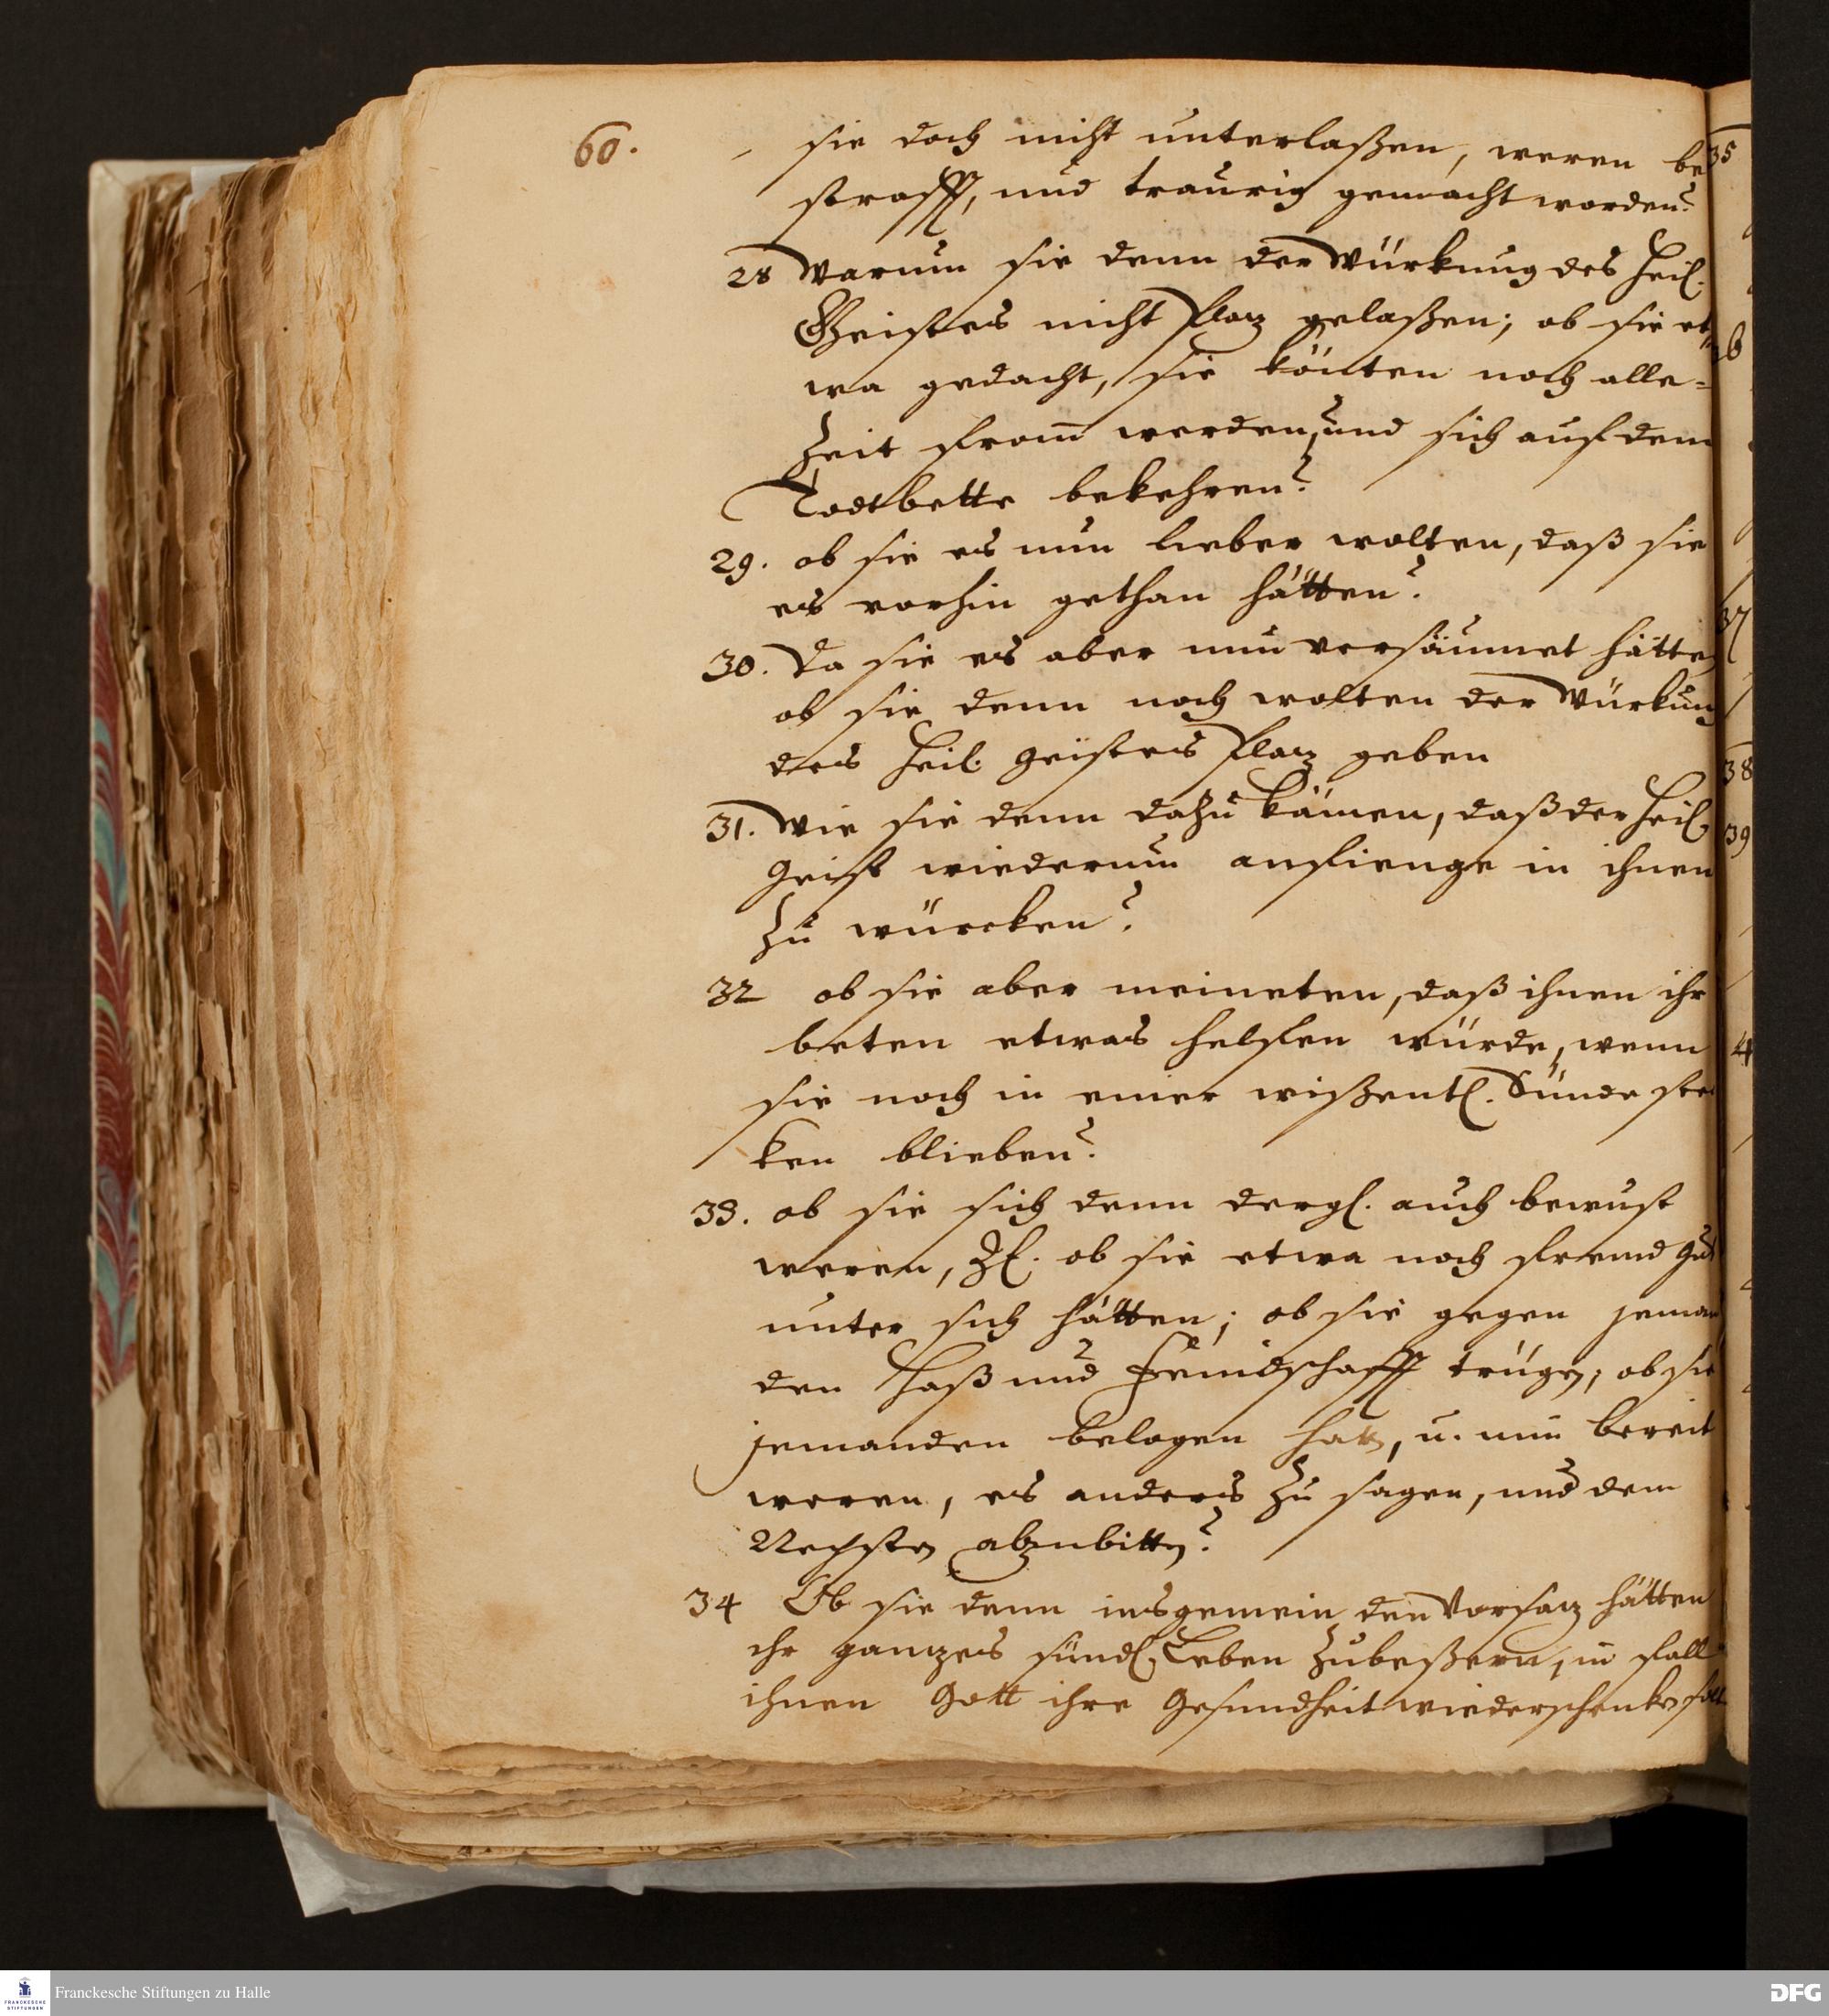 60.
sie doch nicht unterlaßen, weren be
strafft, und traurig gemacht worden?
28 Warum sie denn der Würkung des Heil.
Geistes nicht Platz gelaßen; ob sie et
wa gedacht, sie könten noch alle-
Zeit from werden, und sich auf dem
Todtbette bekehren?
29. ob sie es nun lieber wolten, daß sie
es vorhin gethan hätten?
30. Da sie es aber nun versäumet hätten
ob sie denn noch wolten der Würkung
des Heil. Geistes Platz geben
31. Wie sie denn dazu kämen, daß der Heil.
Geist wiederum anfienge in ihnen
zu würcken?
32 ob sie aber meineten, daß ihnen ihr
beten etwas helfen würde, wenn
sie noch in einer wißentl. Sünde ste
ken blieben?
33. ob sie sich denn dergl. auch bewust
weren, ob sie etwa noch fremd Gut
unter sich hätten; ob sie gegen jeman
den Haß und Feindschafft trügen; ob sie
jemanden belogen hatten, u. nun bereit
weren, es anders zu sagen, und dem
Nechsten abzubitten?
34 Ob sie denn insgemein den Vorsatz hätten
ihr gantzes sündl. Leben zubeßern, in fall
ihnen Gott ihre Gesundheit wiederschenken solt
35
37
38
39
4
Franckesche Stiftungen zu Halle
FRANCKESCHE
STIFTUNGEN
DFG